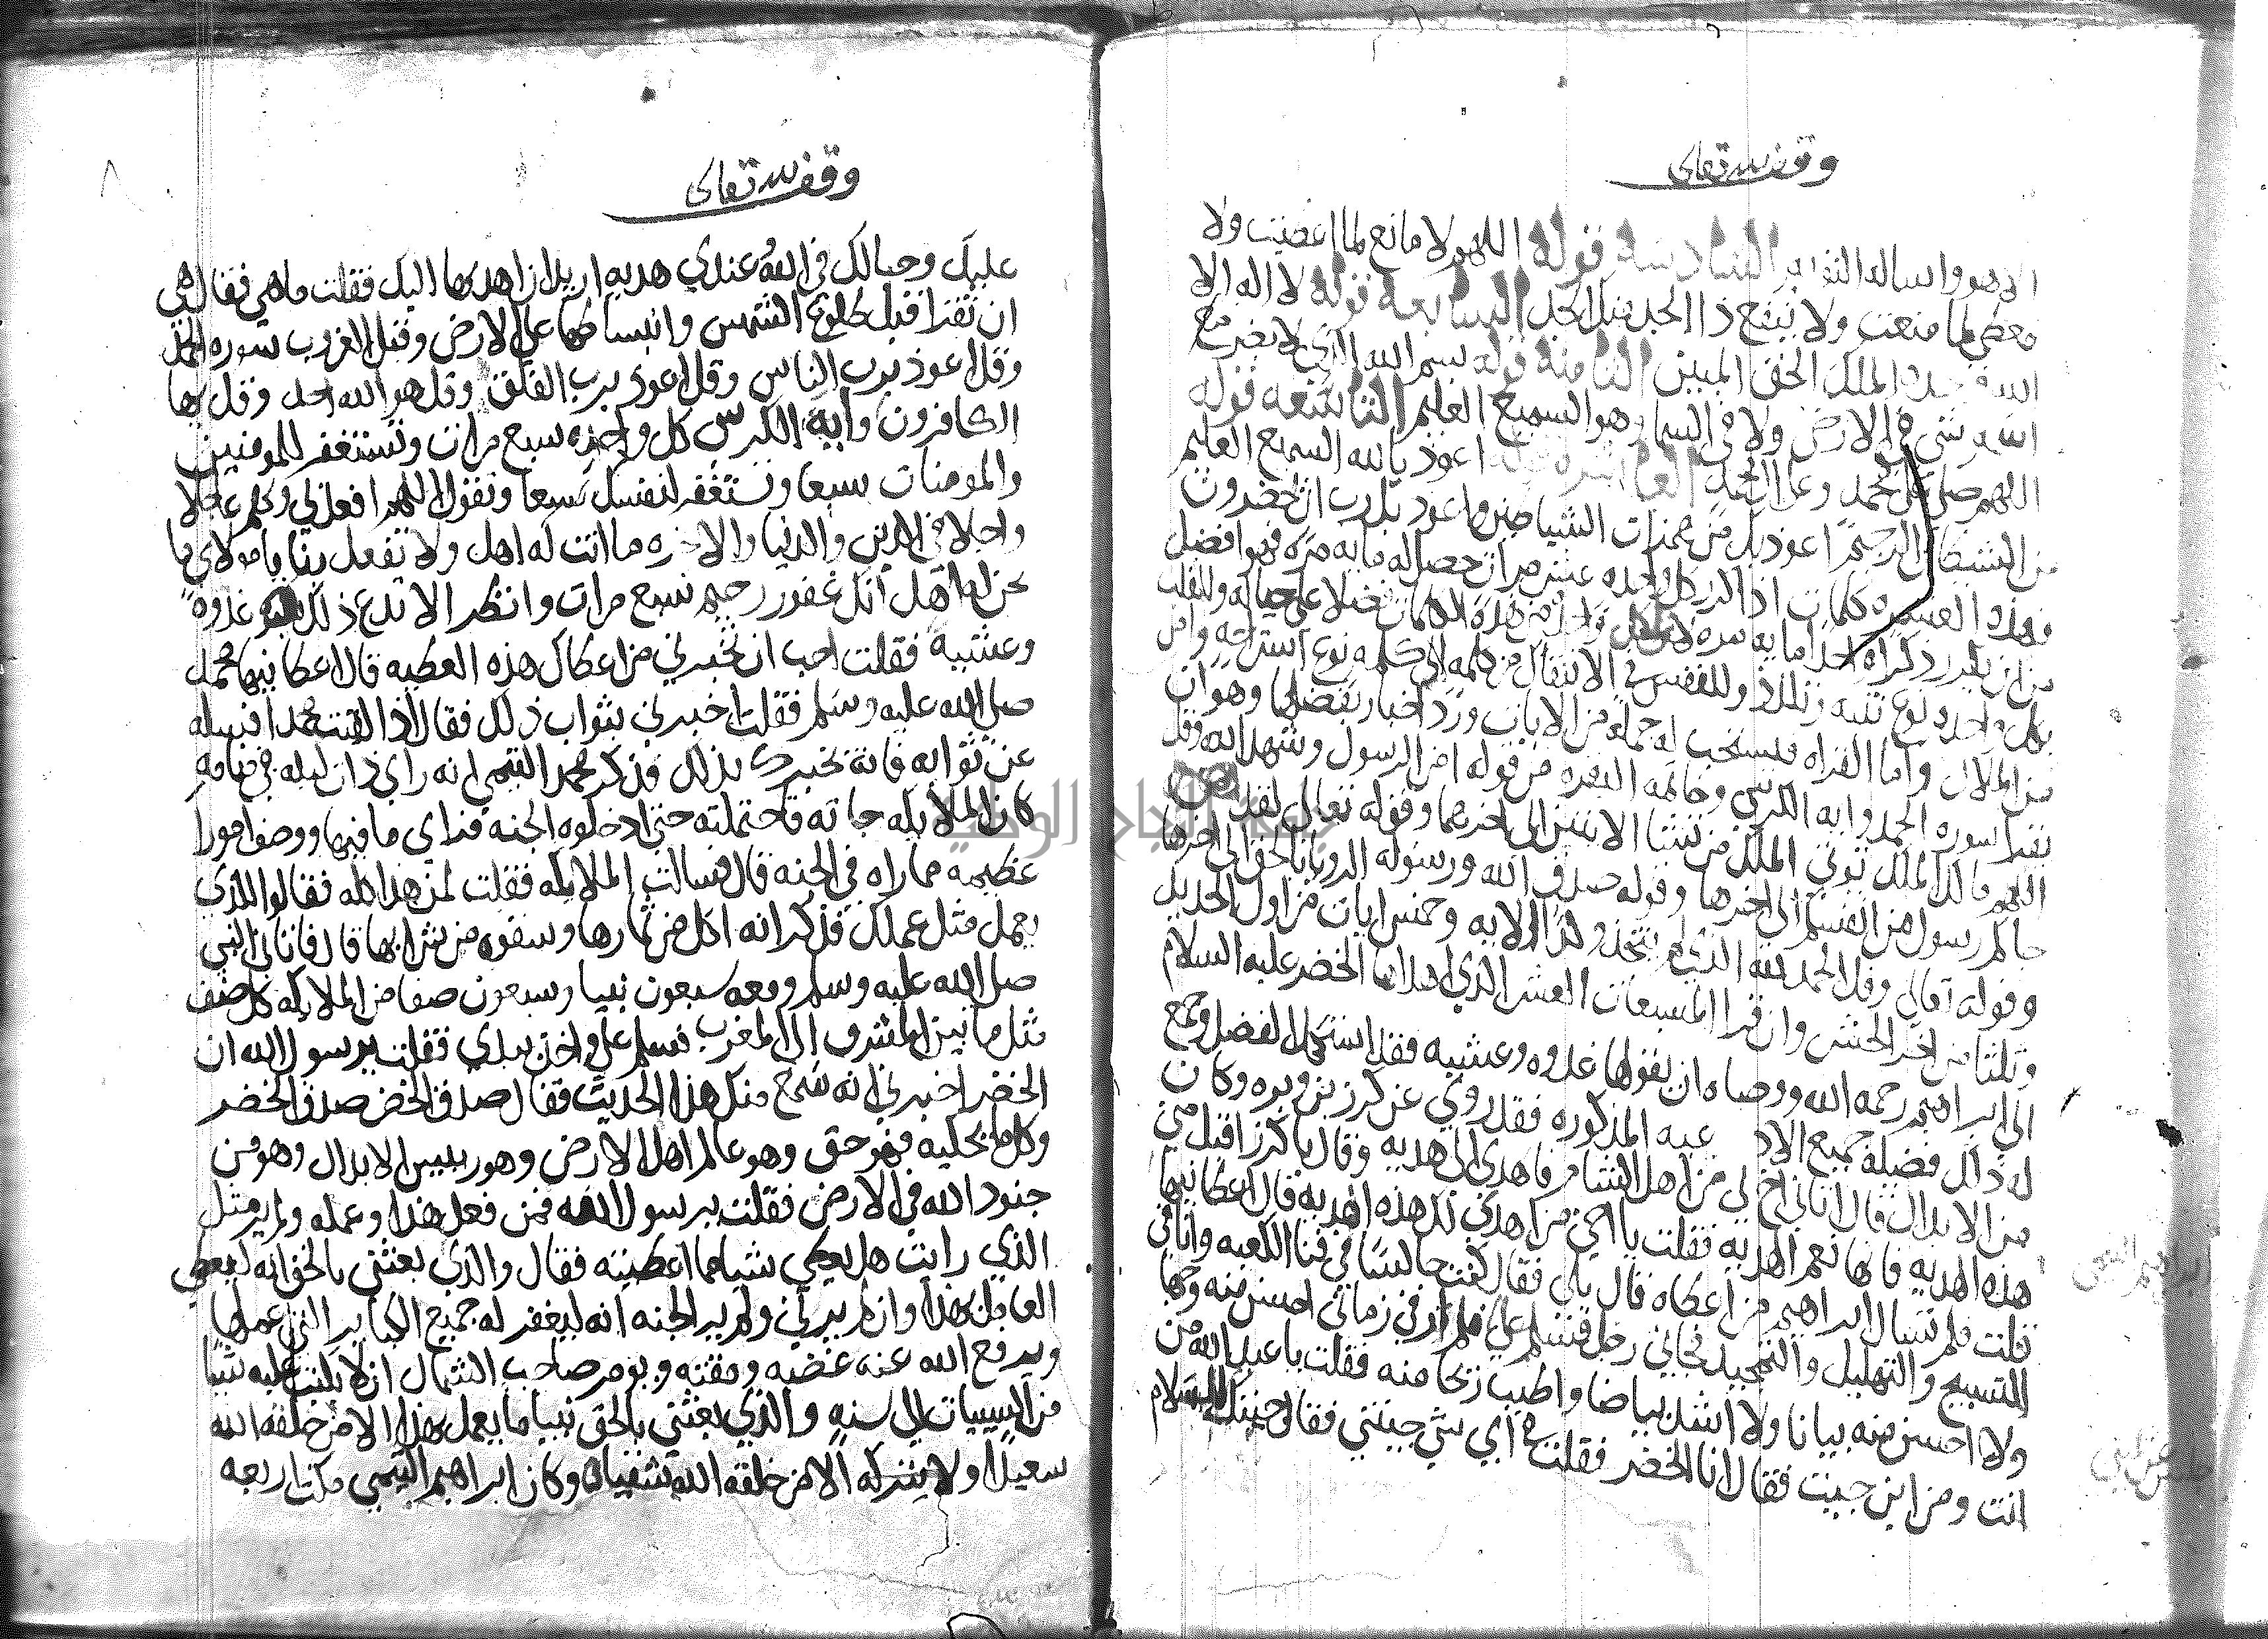 وقف لله تعالى
الا هو واساله التوبه السادسة قوله اللهم لا مانع لما اعطيت ولا
معطي لما منعت ولا ينفع ذا الجد منك الجد السابعة قوله لا اله الا
الله الملك الحق المبين الثامنة قوله بسم الله الذي لا يضر مع
اسمه شي في الارض ولا في السما وهو السميع العليم التاسعه قوله
اللهم صل على محمد وعلى ال محمد العاشرة قوله اعوذ بالله السميع العليم
من الشيطان الرجيم اعوذ بك من همزات الشياطين واعوذ بك رب ان يحضرون
فهذه العشره كلمات اذا كرر كل واحده عشر مرات حصل له مايه مره فهو افضل
من ان يكرر ذكرا واحدا مايه مره لان لكل واحد من هذه الكلمات فضلا على حياله وللقلب
بكل واحده نوع تنبه وتلذذ وللنفس في الانتقال من كلمه الى كلمه نوع استراحه وامن
من الملال واما القراه فيستحب له جمله من الايات ورد الخبار بفضلها وهو ان
يقرا سوره الحمد وايه الكرسي وخاتمه البقره من قوله امن الرسول وشهد الله وقل
اللهم مالك الملك توتي الملك من تشا الايتين الى اخرهما وقوله تعالى لقد
جاكم رسول من انفسكم الى اخرها وقوله صدق الله ورسوله الرويا بالحق الى اخرها
وقوله تعالى وقل الحمد لله الذي لم يتخذ ولدا الايه وخمس ايات من اول الحديد
وثلثا من اخر الحشر وان قرا المسبعات العشر الذي اهداها الخضر عليه السلام
الى ابراهيم رحمه الله ووصاه ان يقولها غدوه وعشيه فقد استكمل الفضل وجمع
له ذلك فضيلة جميع الادعيه المذكوره فقد روي عن كرز بن وبره وكان
من الابدال قال اتاني اخ لي من اهل الشام فاهدى الي هديه وقال يا كرز اقبل مني
هذه الهديه فانها نعم الهديه فقلت يا اخي من اهدى لك هذه الهديه قال اعطانيها
قلت فلم تسال ابراهيم من اعطاه قال بلى فقال كنت جالسا في فنا الكعبه وانا في
التسبيح والتهليل والتمجيد فجاني رجل فسلم علي فلم ار في زماني احسن منه وجها
ولا احسن منه بيانا ولا اشد بياضا واطيب ريحا منه فقلت يا عبد الله من
انت ومن اين جيت فقال انا الخضر فقلت في اي شي جيتني فقال جيتك للسلام
وقف لله تعالى
عليك وحبا لك في الله وعندي هديه اريد ان اهديها اليك فقلت ما هي فقال هي
ان تقرا قبل طلوع الشمس وانبساطها على الارض وقبل الغروب سوره الحمد
وقل اعوذ برب الناس وقل اعوذ برب الفلق وقل هو الله احد وقل يايها
الكافرون واية الكرسي كل واحده سبع مرات وتستغفر للمومنين
والمومنات سبعا وتستغفر لنفسك سبعا وتقول اللهم افعل بي وبهم عاجلا
واجلا في الدين والدنيا والاخره ما انت له اهل ولا تفعل بنا يا مولاي ما
نحن له اهل انك غفور رحيم سبع مرات وانظر الا تدع ذلك غدوة
وعشية فقلت احب ان تخبرني من اعطاك هذه العطيه قال اعطانيها محمد
صلى الله عليه وسلم فقلت اخبرني بثواب ذلك فقال اذا لقيت محمدا فسله
عن ثوابه فانه يخبرك بذلك فذكر محمد التيمي انه راى ذات ليله في منامه
كان الملايكه جاته فاحتملته حتى ادخلوه الجنه فراى ما فيها ووصف امورا
عظيمه مما راه في الجنه قال فسالت الملايكه فقلت لمن هذا كله فقالوا للذي
يعمل مثل عملك فذكر انه اكل من ثمارها وسقوه من شرابها قال فاتاني النبي
صلى الله عليه وسلم ومعه سبعون نبيا وسبعون صفا من الملايكه كل صف
مثل ما بين المشرق الى المغرب فسلم علي واخذ بيدي فقلت يرسول الله ان
الخضر اخبرني انه سمع منك هذا الحديث فقال صدق الخضر صدق الخضر
وكل ما يحكيه فهو حق وهو عالم اهل الارض وهو رييس الابدال وهو من
جنود الله في الارض فقلت يرسول الله فمن فعل هذا وعمله ولم ير مثل
الذي رايت هل يعطي شيا مما اعطيته فقال والذي بعثني بالحق انه ليعطى
العامل بهذا وان لم يرني ولم ير الجنه انه ليغفر له جميع الكباير التي عملها
ويرفع الله عنه غضبه ومقته ويومر صاحب الشمال ان لا يكتب عليه شيا
من السييات الى سنه والذي بعثني بالحق نبيا ما يعمل بهذا الا من خلقه الله
سعيدا ولا يتركه الا من خلقه الله شقيا وكان ابراهيم التيمي مكث اربعه